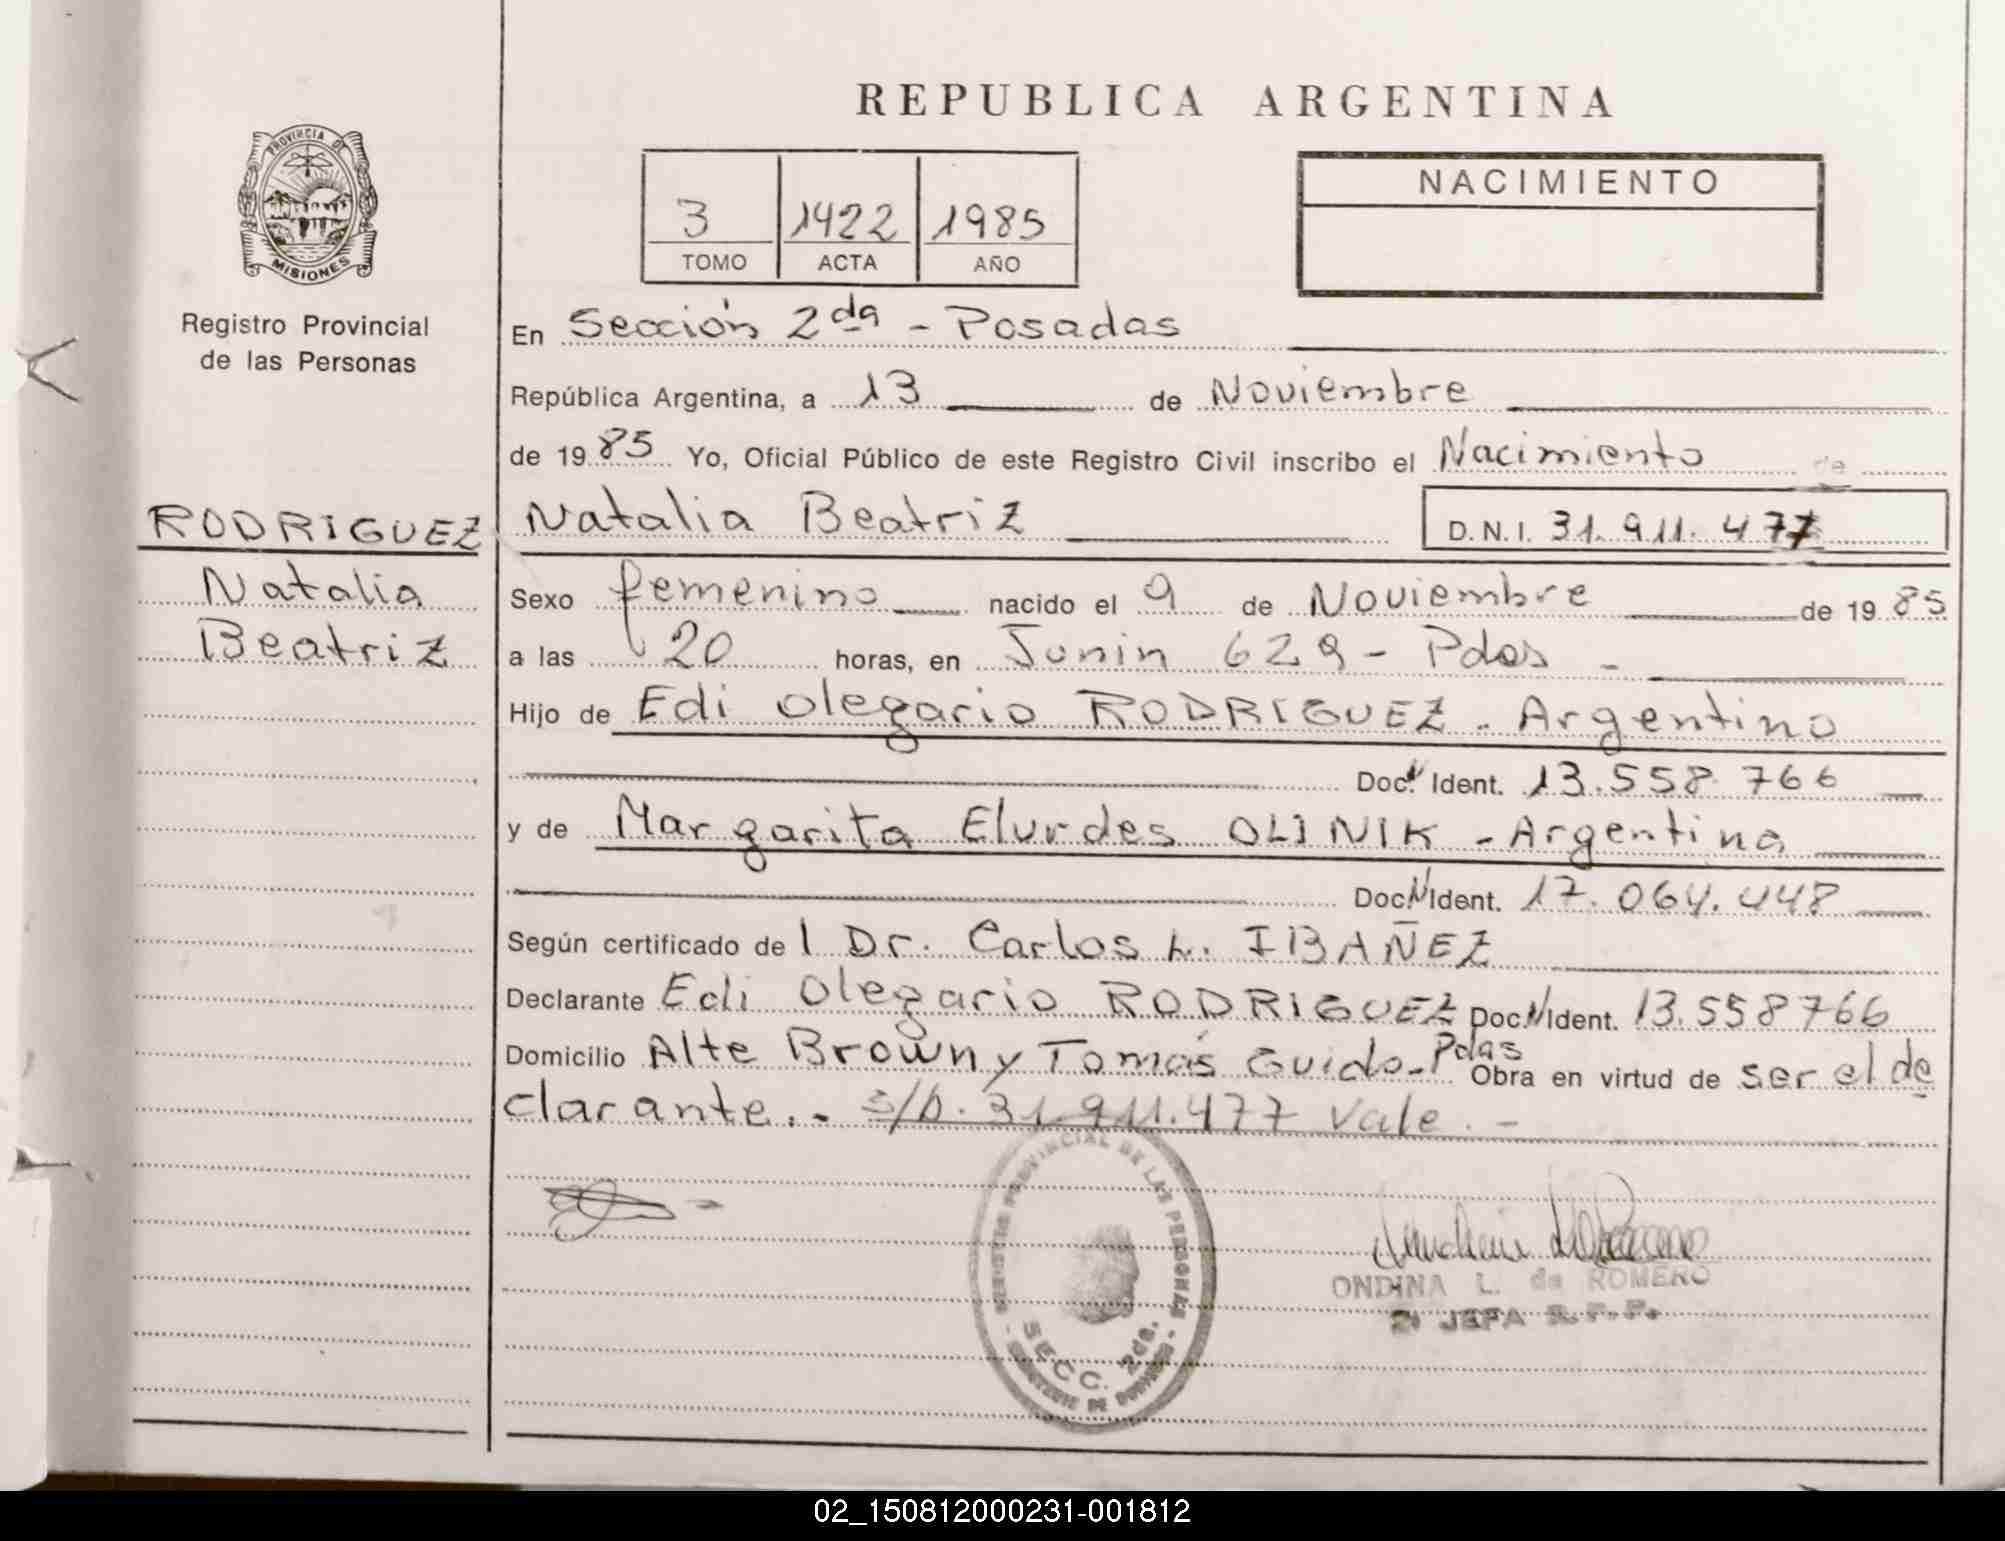 REPUBLICA ARGENTINA
PROVINCIA DE
MISIONES
Registro Provincial
de las Personas
RODRIGUEZ
Natalia
Beatriz
3 1422 1985
TOMO ACTA AÑO
NACIMIENTO
En Sección 2da - Posadas
República Argentina, a 13 de Noviembre
de 1985 Yo, Oficial Público de este Registro Civil inscribo el Nacimiento de
Natalia Beatriz D.N.I. 31.911.477
Sexo femenino nacido el 9 de Noviembre de 1985
a las 20 horas, en Junin 629 - Pdas -
Hijo de Edi Olegario RODRIGUEZ - Argentino
Doc. N Ident. 13.558.766
y de Margarita Elurdes OLINIK - Argentina
Doc. N Ident. 17.064.448
Según certificado de l Dr. Carlos L. IBAÑEZ
Declarante Edi Olegario RODRIGUEZ Doc. N Ident. 13.558766
Domicilio Alte Brown y Tomás Guido - Pdas Obra en virtud de ser el de
clarante. - s/b. 31.911.477 Vale. -
REGISTRO PROVINCIAL DE LAS PERSONAS
SECC. 2da.
ONDINA L. de ROMERO
JEFA R.P.P.
02_150812000231-001812